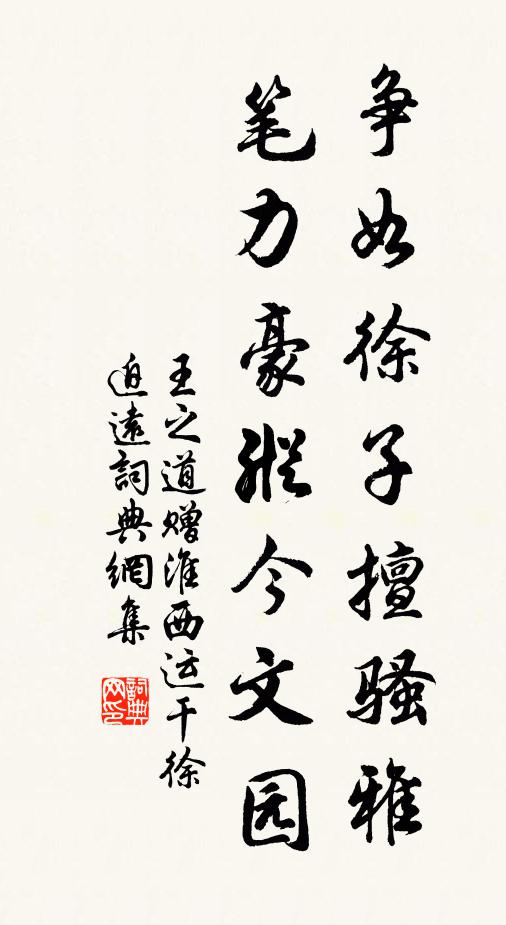 争如徐子擅骚雅
笔力豪縱今文园
王之道赠淮西运干徐
追遠詞典網集
詞典网印